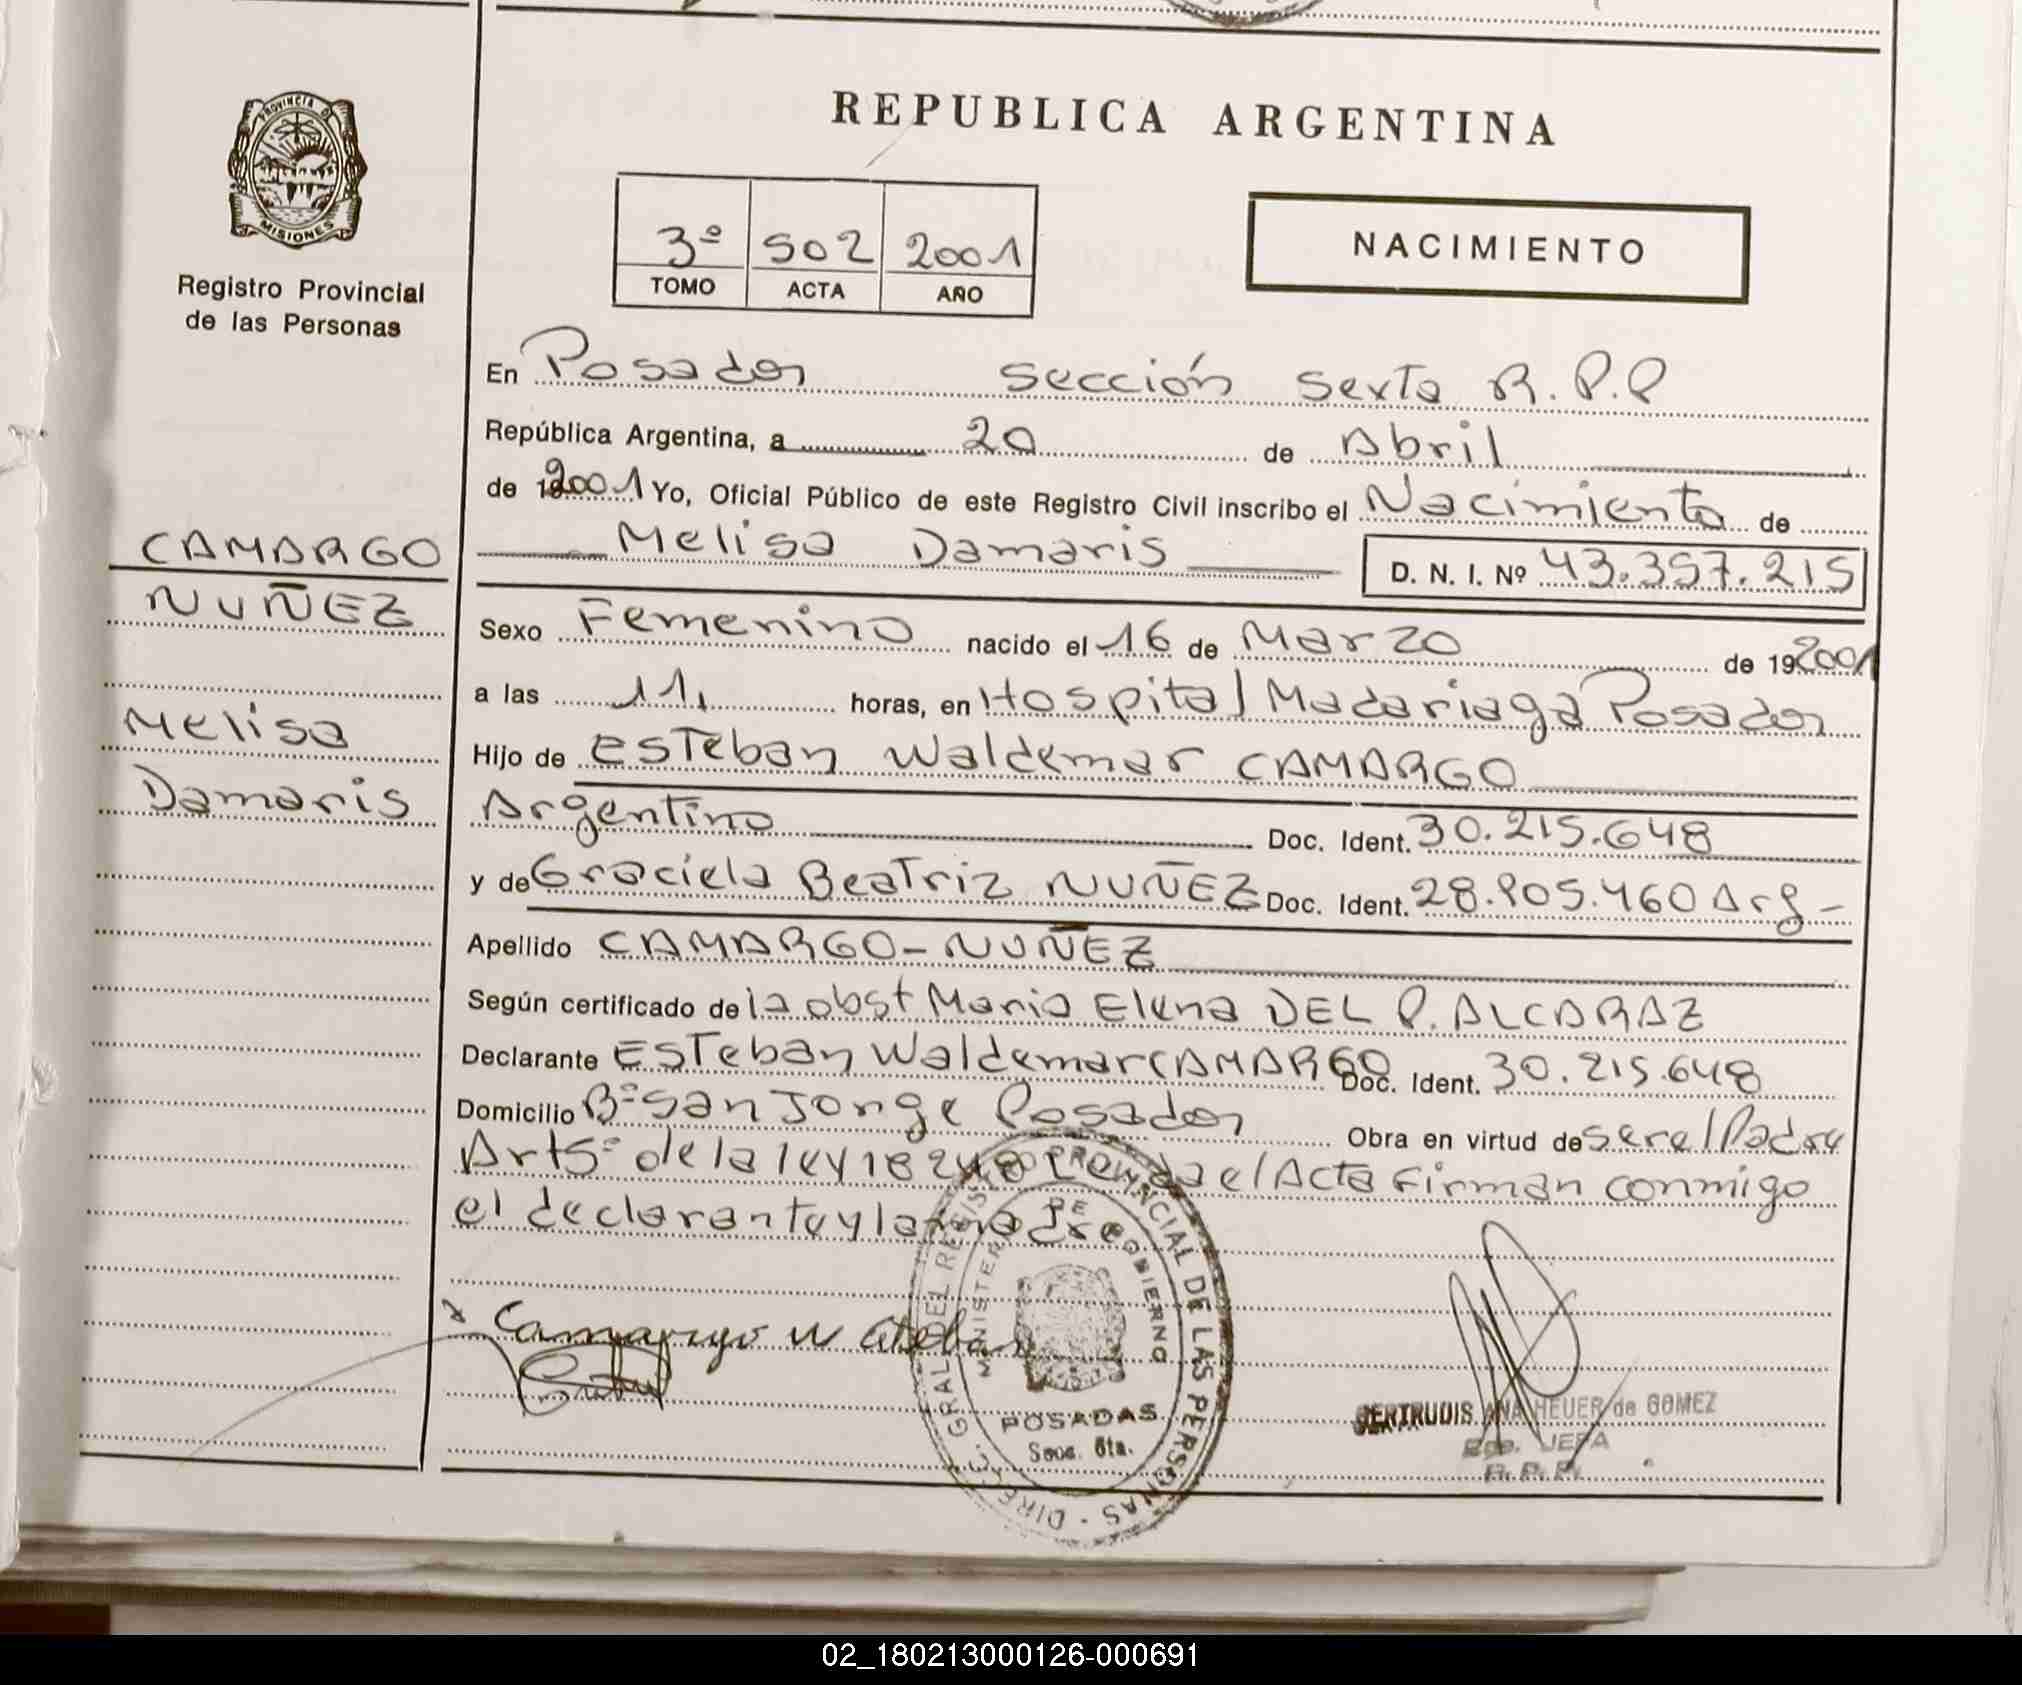 REPUBLICA ARGENTINA
PROVINCIA DE
MISIONES
Registro Provincial
de las Personas
3º 502 2001
TOMO ACTA AÑO
NACIMIENTO
En Posadas sección sexta R.P.P
República Argentina, a 20 de Abril
de 192001 Yo, Oficial Público de este Registro Civil inscribo el Nacimiento de
Melisa Damaris D. N. I. Nº 43.357.215
CAMARGO
NUÑEZ
Melisa
Damaris
Sexo Femenino nacido el 16 de Marzo de 192001
a las 11, horas, en Hospital Madariaga Posadas
Hijo de Esteban Waldemar CAMARGO
Argentino Doc. Ident. 30.215.648
y de Graciela Beatriz NUÑEZ Doc. Ident. 28.905.460 Arg-
Apellido CAMARGO-NUÑEZ
Según certificado de la obst Maria Elena DEL P. ALCARAZ
Declarante Esteban Waldemar CAMARGO Doc. Ident. 30.215.648
Domicilio Bº San Jorge Posadas Obra en virtud de ser el Padre
Art 5º de la ley 18248 Leída el Acta Firman conmigo
el declarante y la madre
Camargo W Esteban
DIREC. GRAL DEL REGISTRO PROVINCIAL DE LAS PERSONAS
MINISTERIO DE GOBIERNO
POSADAS
Secc. 6ta.
GERTRUDIS ANA HEUER de GOMEZ
JEFA
R. P. P.
02_180213000126-000691